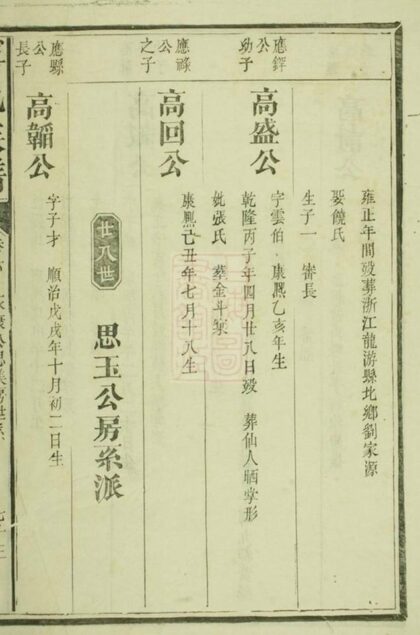 雍正年間歿葬浙江龍游縣北鄉劉家源
娶饒氏
生子一 審長
應鐸公幼子
高盛公
字雲伯 康熙乙亥年生
乾隆丙子年四月廿八日歿 葬仙人晒掌形
妣張氏 葬金斗窠
應祿公之子
高回公
康熙己丑年七月十八生
廿八世 思玉公房系派
應縣公長子
高韜公
字子才 順治戊戌年十月初二日生